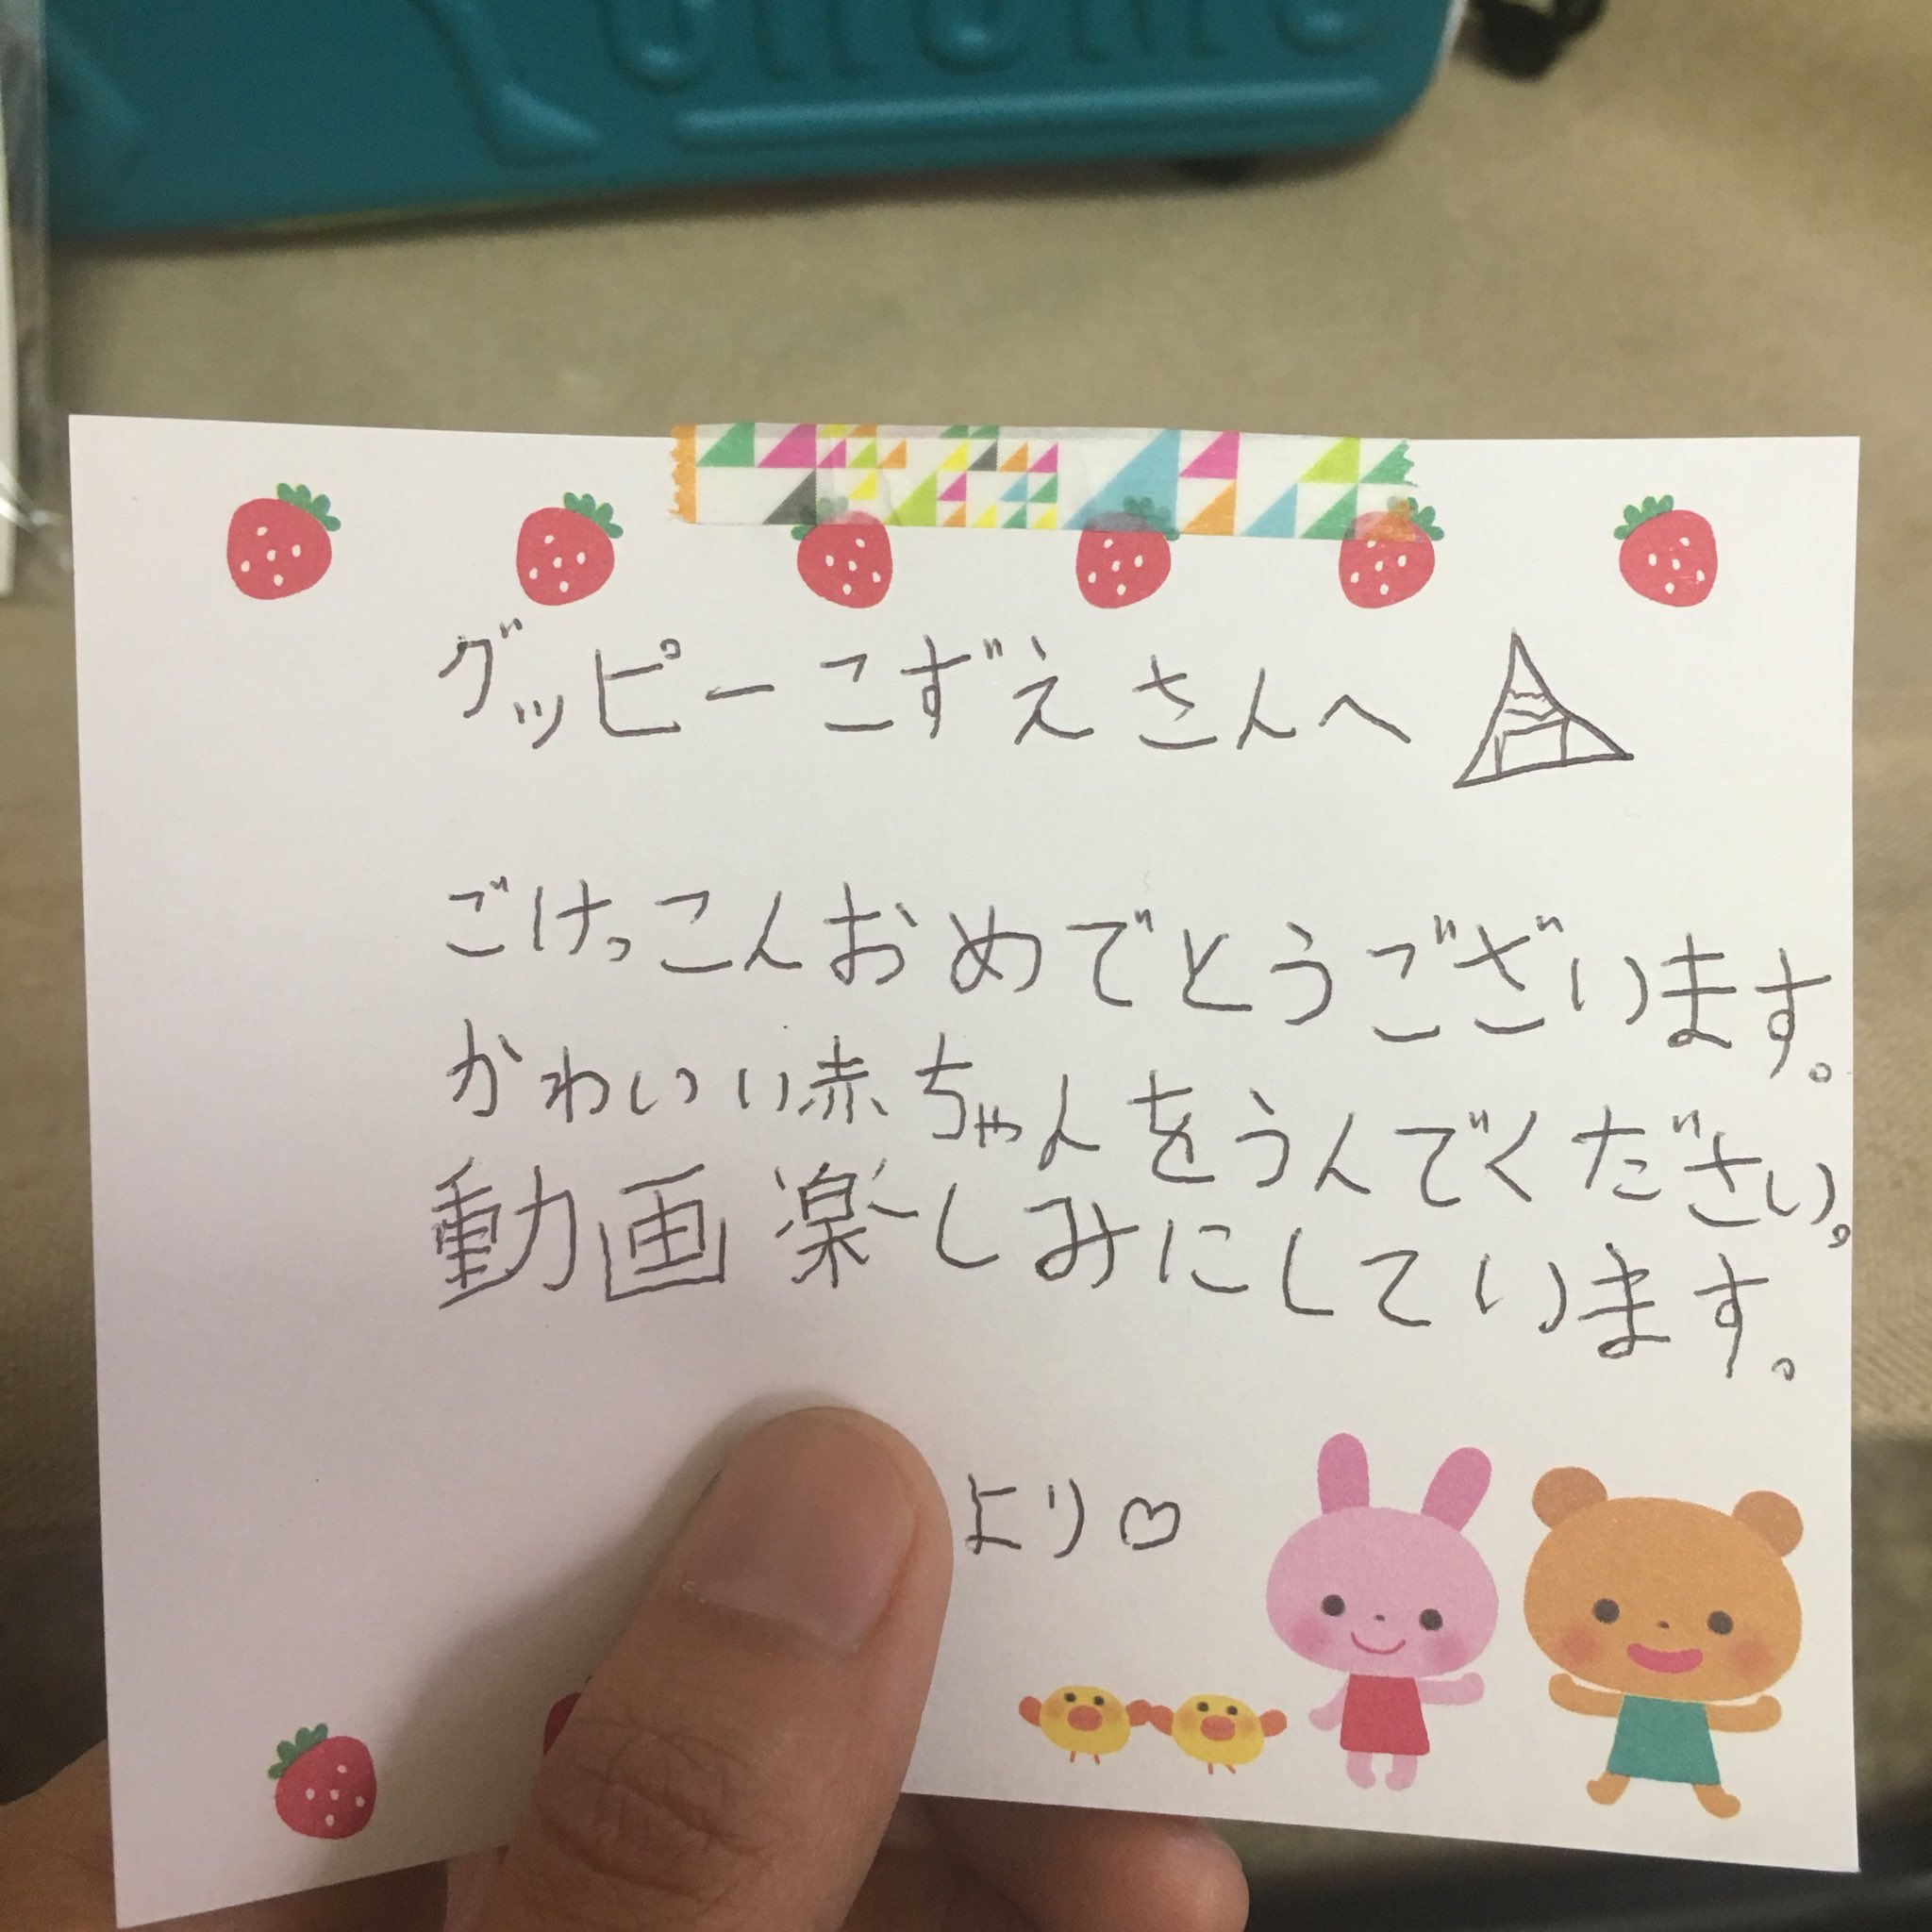 グッピーこずえさんへ
ごけっこんおめでとうございます。
かわいい赤ちゃんをうんでください。
動画楽しみにしています。
より♡